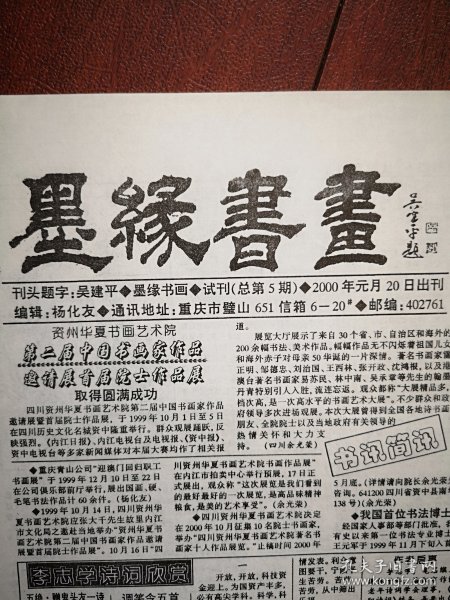 墨緣書畫
吴建平题
刊头题字：吴建平◆墨缘书画◆试刊(总第5期)◆2000年元月20日出刊
编辑：杨化友◆通讯地址：重庆市璧山651信箱6－20#◆邮编：402761
资州华夏书画艺术院
第二届中国书画家作品
邀请展首届院士作品展
取得圆满成功
四川资州华夏书画艺术院第二届中国书画家作品
邀请展暨首届院士作品展，于1999年10月1日至5日
在四川历史文化名城资中隆重举行。群众观展踊跃，反
映强烈。《内江日报》、内江电视台及电视报、《资中报》、
资中电视台等多家新闻媒体对本届大赛均作了相关报
道。
展览大厅展示了来自30个省、市、自治区和海外的
200余幅书法、美术作品，幅幅作品无不闪烁着祖国儿女
和海外赤子对母亲50华诞的一片深情。著名书画家谢
正明、邹德忠、刘治国、王西林、张开政、沈鸿根，以及港
澳台著名书画家易苏民、林中南、吴承章等先生的翰墨
丹青特别引人入胜，流连忘返。观众都称“大展精品多，
档次高，是一次高水平的书画艺术大展”。不少群众和政
府领导多次进场观展。本次大展曾得到全国各地诗书画
朋友、全院院士以及当地政府有关领导的
热情关怀和大力支
持。(四川余光荣)
书讯简讯
◆重庆青山公司“迎澳门回归职工
书画展”于1999年12月10日至22日
在公司俱乐部前厅举行，展出国画、硬、
毛笔书法作品计60余件。(杨化友)
◆1999年10月14日，四川资州华
夏书画艺术院应张大千先生故里内江
市文化局之邀赴当地举办“资州华夏书
画艺术院第二届中国书画家作品邀请
展暨首届院士作品展”。10月16日“四
川资州华夏书画艺术院书画作品展”
在内江市拍卖中心举行预展，17日正
式展出，观众称“这次展览是我们看到
的最好最好的一次展览，是高品味精神
粮食，是美的艺术享受”。(余光荣)
◆四川资州华夏书画艺术院决定
在2000年10月征集10名院士书画家，
举办“四川资州华夏书画艺术院著名书
画家十人作品展览。”止稿时间2000年
5月底。(详情请向院长余光荣
咨询。641200四川省资中县南
138号)(余光荣)
◆我国首位书法博士
经国家人事部等部门批准，
有史以来第一位书法专业博士
王元军于1999年11月下旬入
李志学诗词欣赏